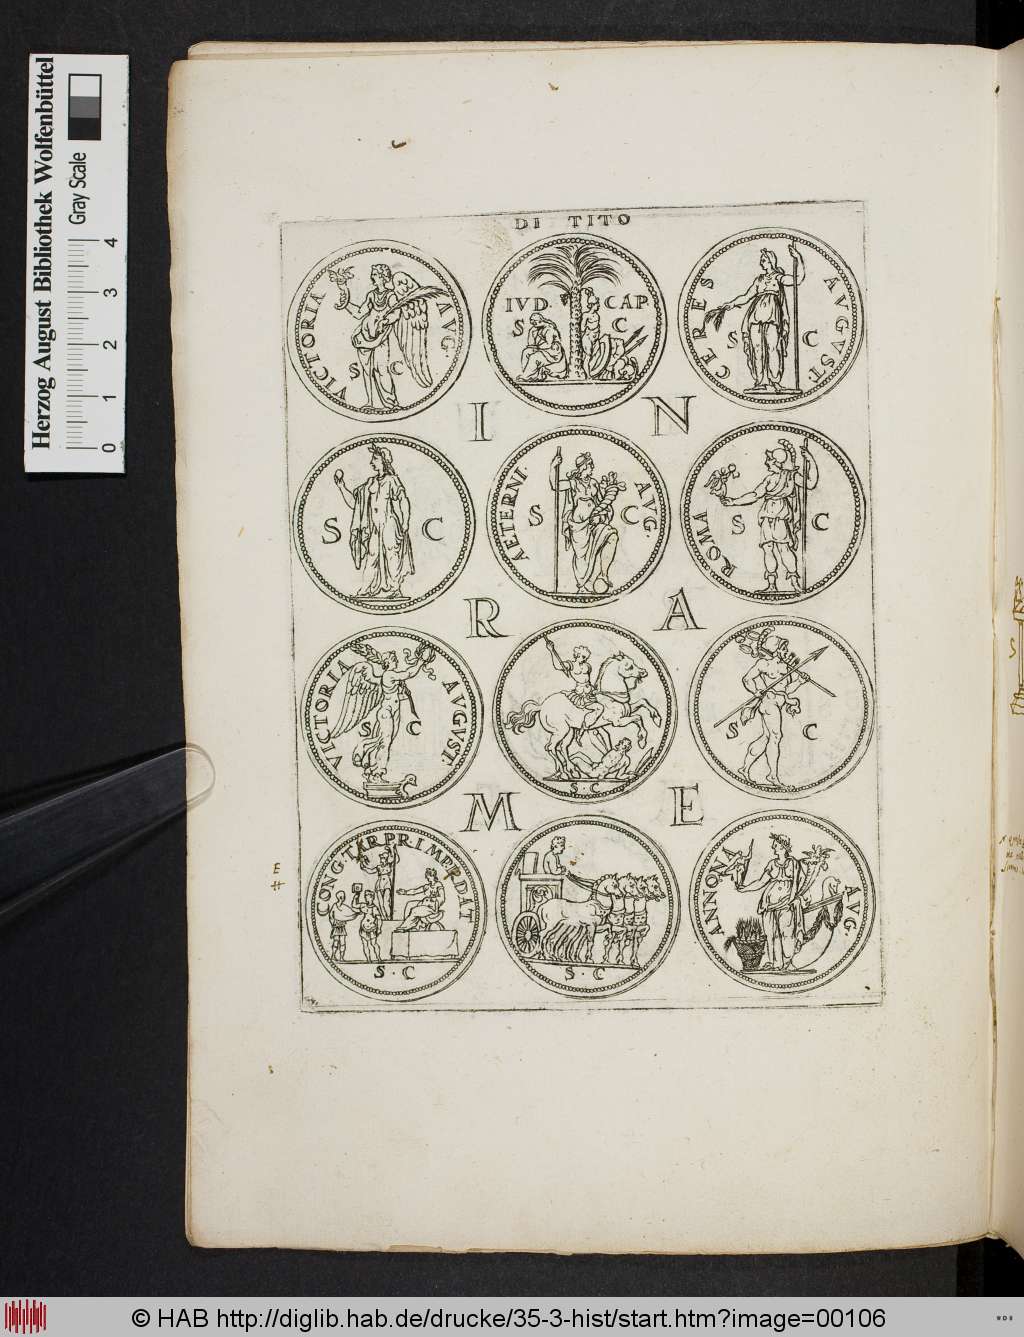 DI TITO
VICTORIA AVG·
S C
IVD. CAP.
S C
CERES AVGVST.
S C
I N
S C
AETERNI· AVG·
S C
ROMA
S C
R A
VICTORIA AVGVST.
S C
S·C
S C
M E
CONG·TAR PRIM P R DAT
S·C
S·C
ANNONA AVG·
E
Herzog August Bibliothek Wolfenbüttel
Gray Scale
0 1 2 3 4
© HAB http://diglib.hab.de/drucke/35-3-hist/start.htm?image=00106